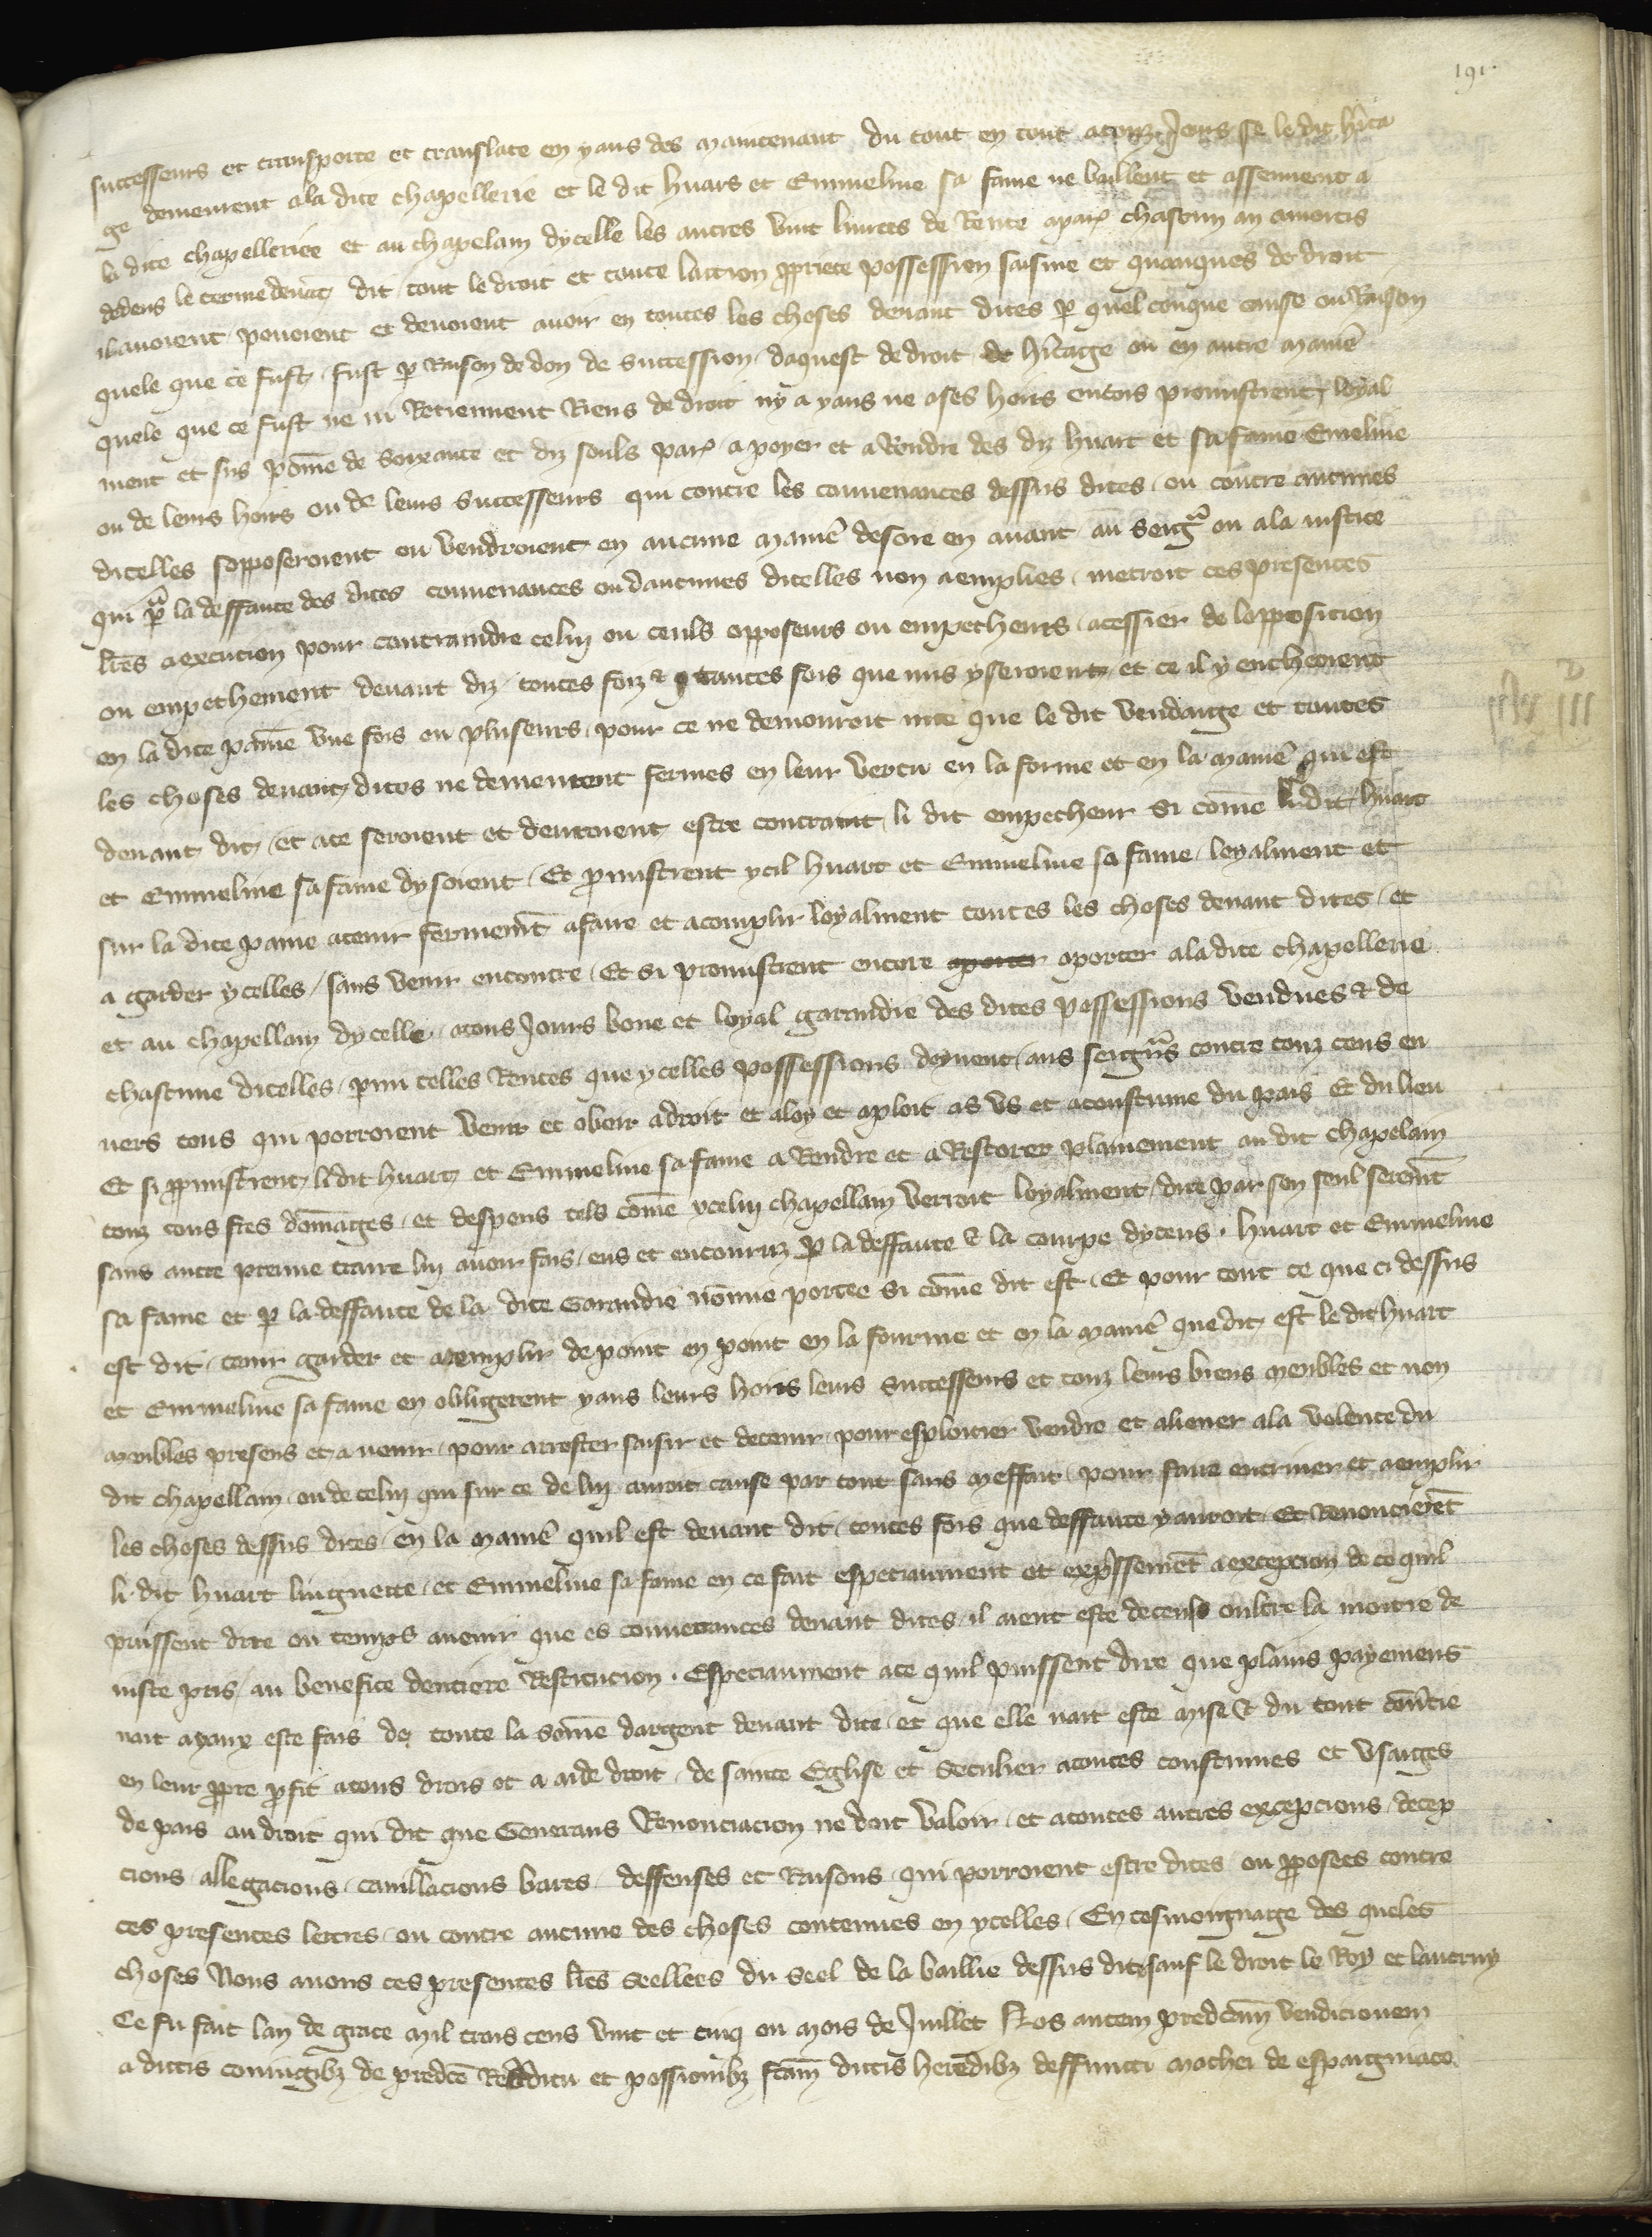 191.
successeurs et transporte et translate en yaus des maintenant du tout en tout a touz Jours se le dit hita
ge demeurent a la dite chapellerie et le dit huars et Emmeline sa fame ne baillent et assennent a
la dite chapellerie et au chapelain dycelle les autres vint liurees de Rente a par chascun an amortis
dedens le terme deuat dit tout le droit et toute laction ppriete possession saisine et quanques de droit
il auoient pouoient et deuoient auoir en toutes les choses deuant dites p quelconque cause ou Raison
quele que ce fust fust p Raison de don de succession daquest de droit de hitage ou en autre maniē
quele que ce fust ne ni Retiennent Riens de droit ny a yaus ne a ses hoirs encois promistrent loyal
ment et sus pome de soixante et diz souls par a poyer et a Rendre des diz huart et sa fame Emeline
ou de leurs hoirs ou de leurs successeurs qui contre les conuenances dessus dites ou contre aucunes
dicelles sopposeroient ou vendroient en aucune maniē desore en auant au seigr ou a la iustice
qui p la deffaute des dites conuenances ou daucunes dicelles non aemplies metroit ces presentes
lrēs a execucion pour contraindre celuy ou ceuls opposeurs ou empecheurs a cessier de lopposicion
ou empechement deuant diz toutes foiz & quantes fois que mis y seroient et ce il y encheoient
en la dite paine vne fois ou pluseurs pour ce ne demouroit mie que le dit vendaige et toutes
les choses deuant dites ne demeurent fermes en leur vertu en la forme et en la maniē qui est
deuant dit et a ce seroient et deuroient estre contraint li dit empecheur si come li dit huart
et Emmeline sa fame dysoient Et pmistrent ycil huart et Emmeline sa fame loyalment et
sur la dite paine a tenir fermemt a faire et acomplir loyalment toutes les choses deuant dites et
a garder ycelles sans venir encontre Et si promistrent encore aporter aporter a la dite chapellerie
et au chapellain dycelle a tous Jours bone et loyal garandie des dites possessions vendues & de
chascune dicelles pmi telles Rentes que ycelles possessions doyuent aus seigurs contre touz ceus en
uers tous qui porroient venir et obeir a droit et a loy et a ploit as vs et a coustume du pais Et du lieu
Et si pmistrent li dit huart et Emmeline sa fame a Rendre et a Restorer plainement au dit chapelain
touz cous fres domages et despens tels come ycelui chapellain verroit loyalment dire par son seul seremt
sans autre preuue traire luy auoir fais eus et encouruz p la deffaute & la coupe dyceus huart et Emmeline
sa fame et p la deffaute de la dite Garandie nonmie portee si come dit est Et pour tout ce que ci dessus
est dit tenir garder et aemplir de point en point en la fourme et en la maniē que dit est le dit huart
et Emmeline sa fame en obligerent yaus leurs hoirs leurs successeurs et touz leurs biens meubles et non
meubles presens et a uenir pour arrester saisir et detenir pour esploitier vendre et aliener a la volente du
dit chapellain ou de celuy qui sur ce de luy auroit cause par tout sans meffait pour faire enteriner et aemplir
les choses dessus dites en la maniē quil est deuant dit toutes fois que deffaute y auroit Et Renoncieret
li dit huart linguette et Emmeline sa fame en ce fait especiaument et expssemet a excepcion de ce quil
puissent dire ou temps auenir que es conuenances deuant dites il aient este deceuls oultre la moitie de
iuste pris au benefice dentiere Resticucion Especiaument a ce quil puissent dire que plains payemens
nait a yaux este fais de toute la some dargent deuant dite et que elle nait este mise & du tout couertie
en leur ppre pfit a tous drois et a aide droit de sainte Eglise et seculier a toutes coustumes et vsaiges
de pais au droit qui dit que Generaus Renonciacion ne doit valoir et a toutes autres excepcions decep
cions allegacions cauillacions bares deffenses et Raisons qui porroient estre dites ou pposees contre
ces presentes lettres ou contre aucune des choses contenues en ycelles En tesmoingnage des queles
choses Nous auons ces presentes lrēs seellees du seel de la baillie dessus dite sauf le droit le Roy et lautruy
Ce fu fait lan de grace mil trois cens vint et cinq ou mois de Juillet Nos autem predcam vendicionem
a dictis coniugibz de predce Redditu et possionibz fcam dictis heredibz deffuncti mathei de espaigniaco